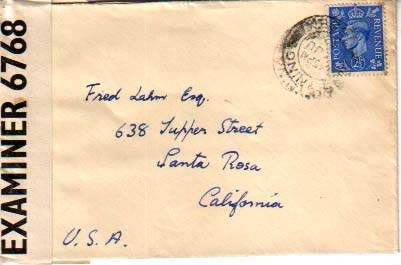 EXAMINER 6768
POSTAGE REVENUE
Fred Lahm Esq.
638 Tupper Street
Santa Rosa
California
U.S.A.